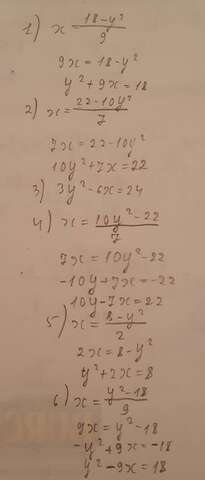 1) x = (18-y²)/9
9x = 18-y²
y²+9x = 18
2) x = (22-10y²)/7
7x = 22-10y²
10y²+7x = 22
3) 3y²-6x = 24
4) x = (10y²-22)/7
7x = 10y²-22
-10y+7x = -22
10y-7x = 22
5) x = (8-y²)/2
2x = 8-y²
y²+2x = 8
6) x = (y²-18)/9
9x = y²-18
-y²+9x = -18
y²-9x = 18